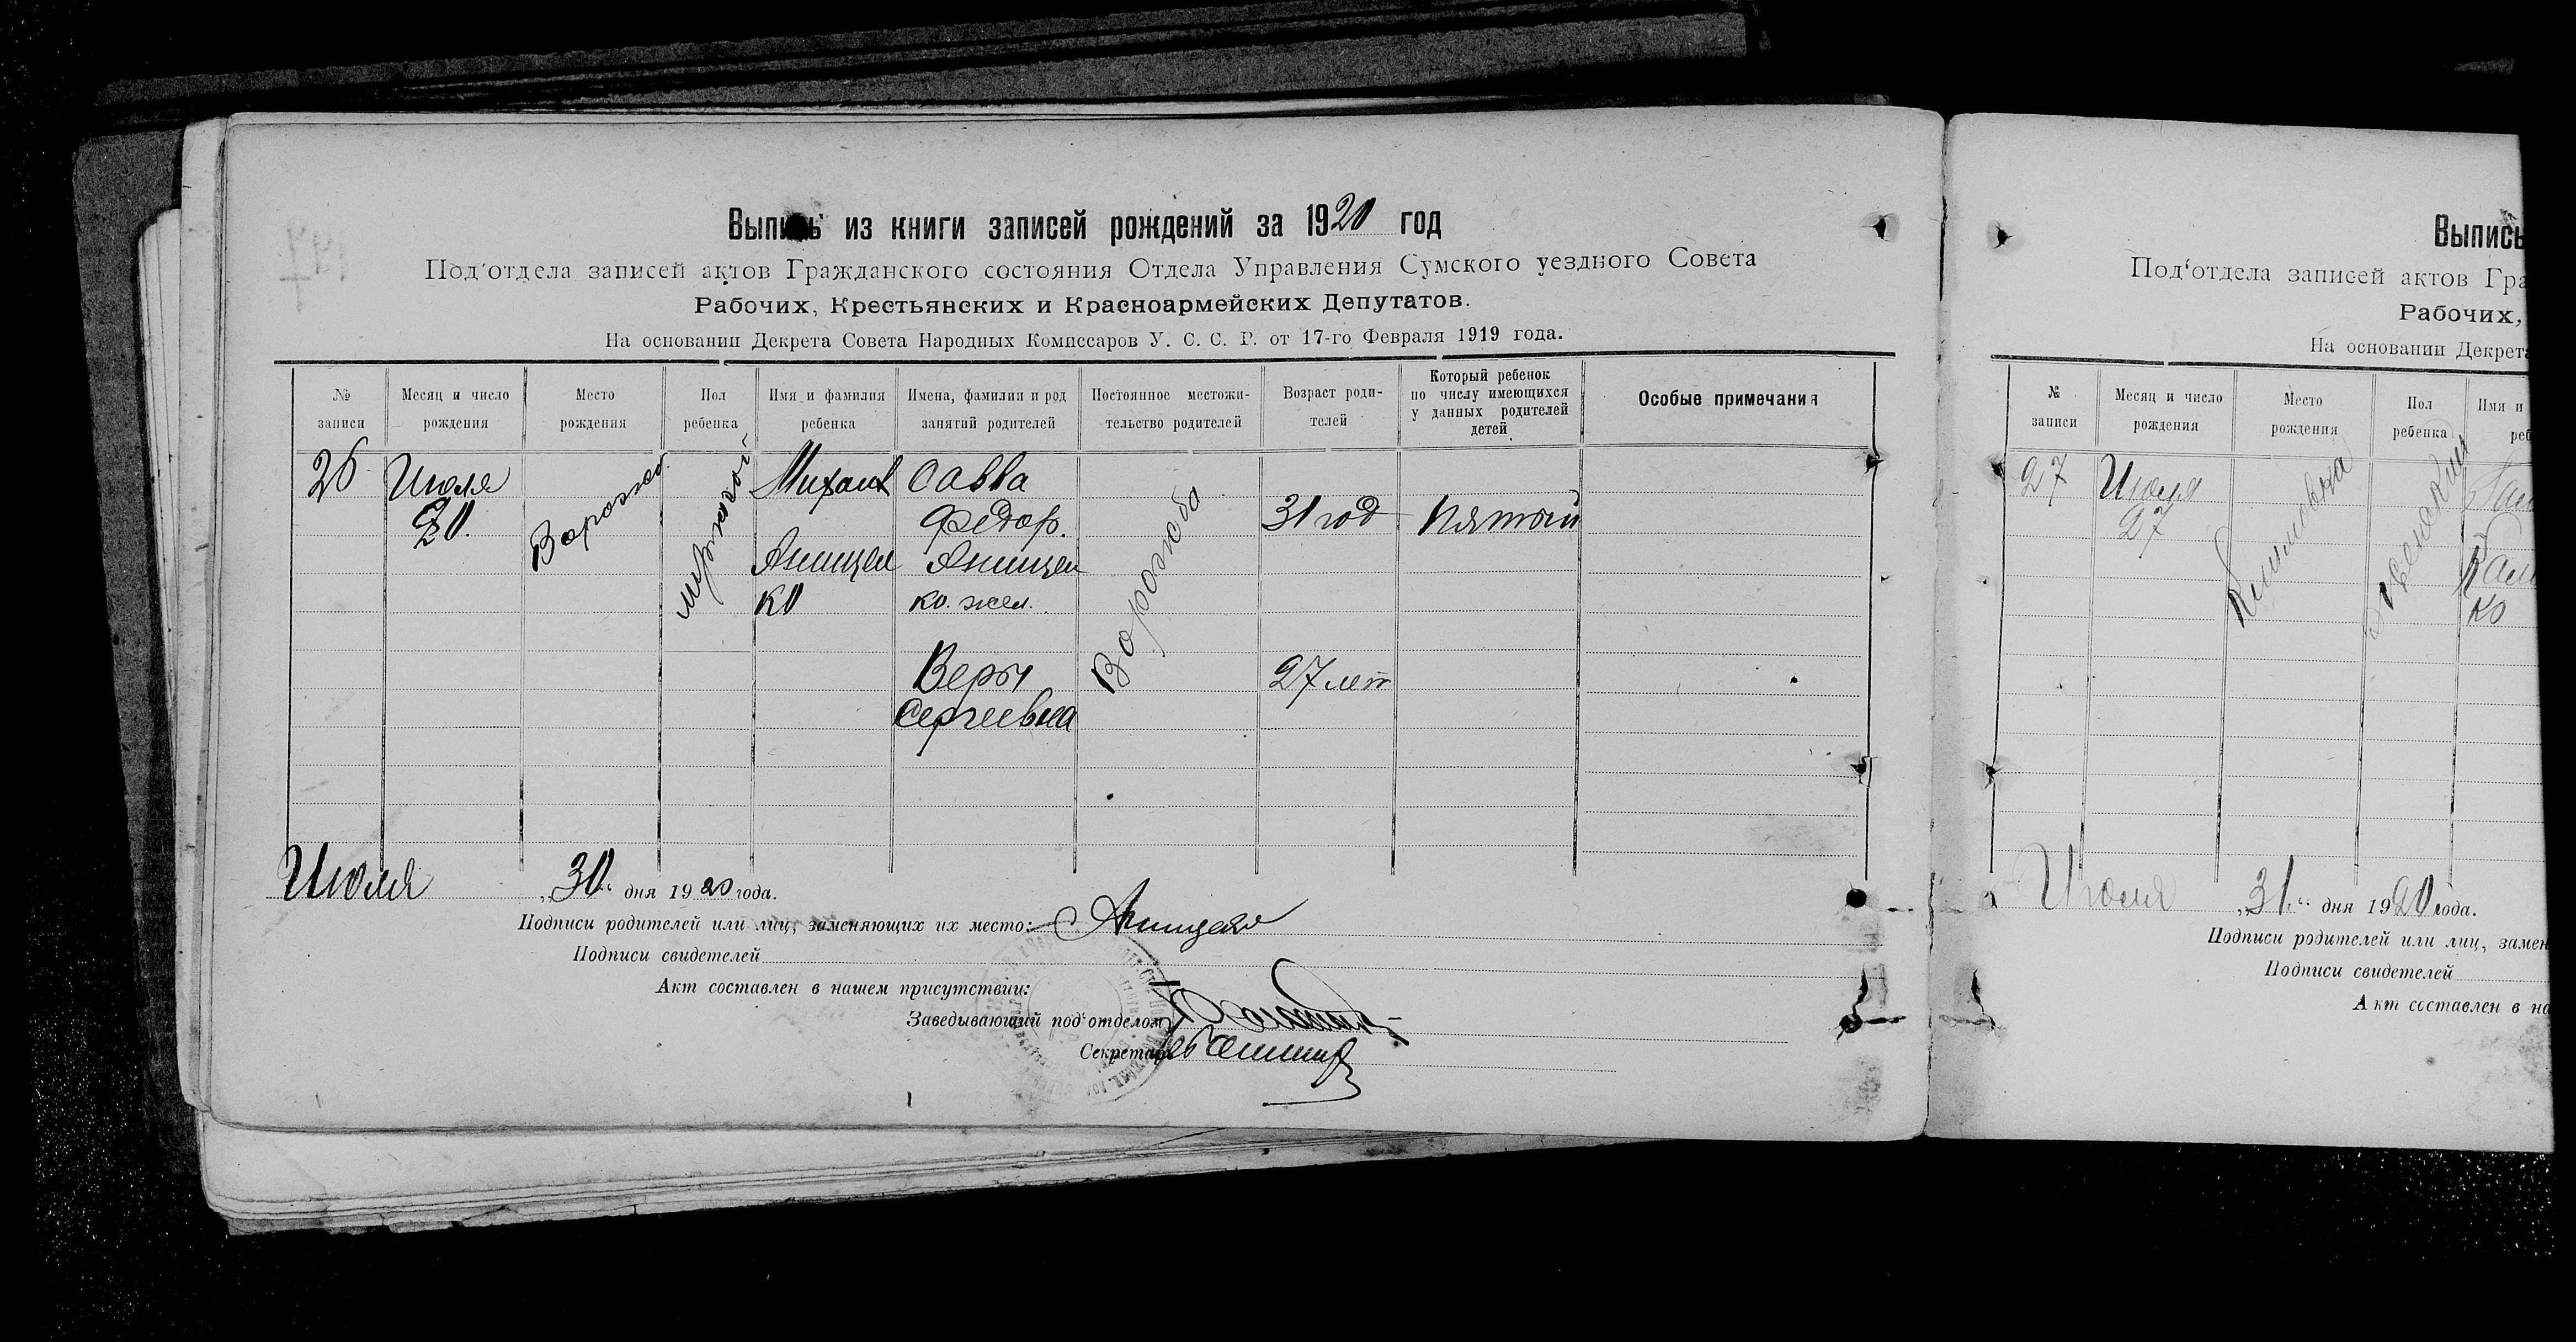 Выпись из книги записей рождений за 1920 год
Под'отдела записей актов Гражданского состояния Отдела Управления Сумского уездного Совета
Рабочих, Крестьянских и Красноармейских Депутатов.
На основании Декрета Совета Народных Комиссаров У. С. С. Р. от 17-го Февраля 1919 года.
№ записи
Месяц и число рождения
Место рождения
Пол ребенка
Имя и фамилия ребенка
Имена, фамилии и род занятий родителей
Постоянное местожительство родителей
Возраст родителей
Который ребенок по числу имеющихся у данных родителей детей
Особые примечания
26
Июля
20.
Ворожба
мужской
Михаил
Анищен
ко
Савва
Федор.
Анищен
ко. жен.
Веры
Сергеевна
Ворожба
31 год
27 лет
Пятый
Июля „30“ дня 1920 года.
Подписи родителей или лиц, заменяющих их место:
Подписи свидетелей
Акт составлен в нашем присутствии:
Заведывающий под'отделом
Секретарь
Выпись
Под'отдела записей актов Гра
Рабочих,
На основании Декрета
№ записи
Месяц и число рождения
Место рождения
Пол ребенка
Имя и
реб
27
Июля
27
женский
ко
Июля „31“ дня 1920 года.
Подписи родителей или лиц, замен
Подписи свидетелей
Акт составлен в на